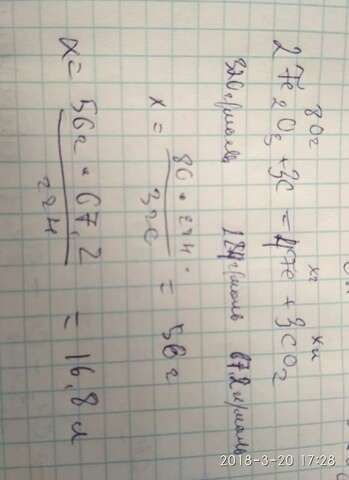 80г      хг      хл
2Fe₂O₃ + 3C = 4Fe + 3CO₂
320г/моль      224г/моль      67,2л/моль
х = 80 · 224 / 320 = 56г
х = 56г · 67,2 / 224 = 16,8 л
2018-3-20 17:28